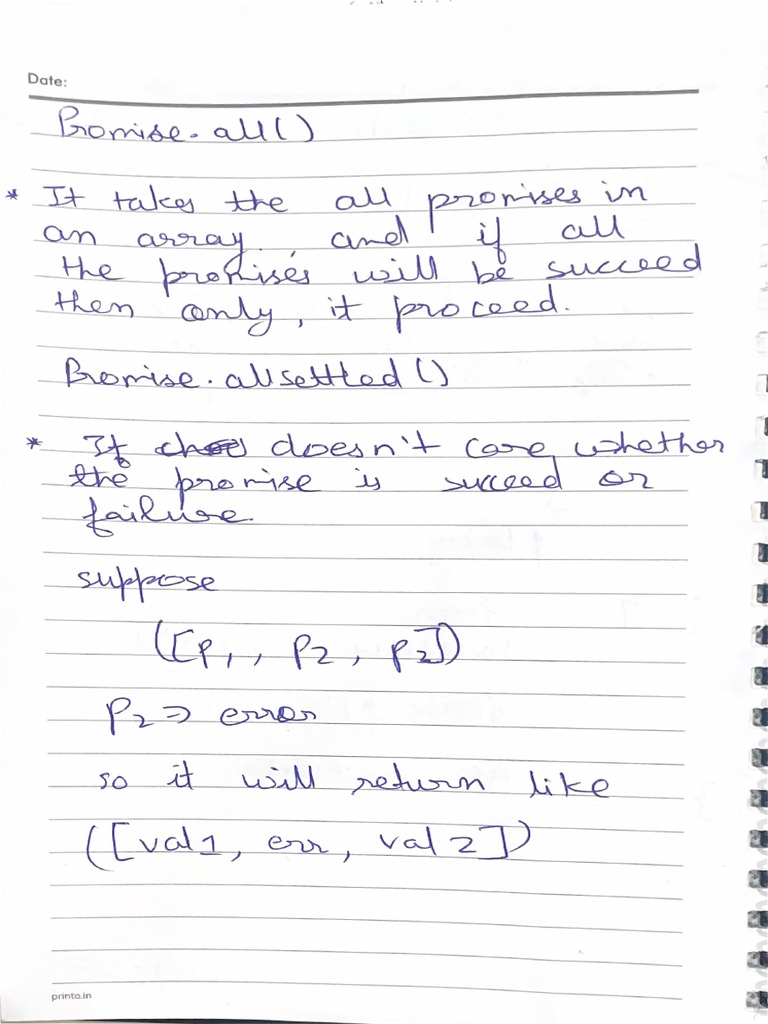 Date:
Promise.all()
* It takes the all promises in
an array, and if all
the promises will be succeed
then only, it proceed.
Promise.allsettled()
* It doesn't care whether
the promise is succeed or
failure.
suppose
([P1, , P2, P2])
P2 => error
so it will return like
([val1, err, val2])
printo.in